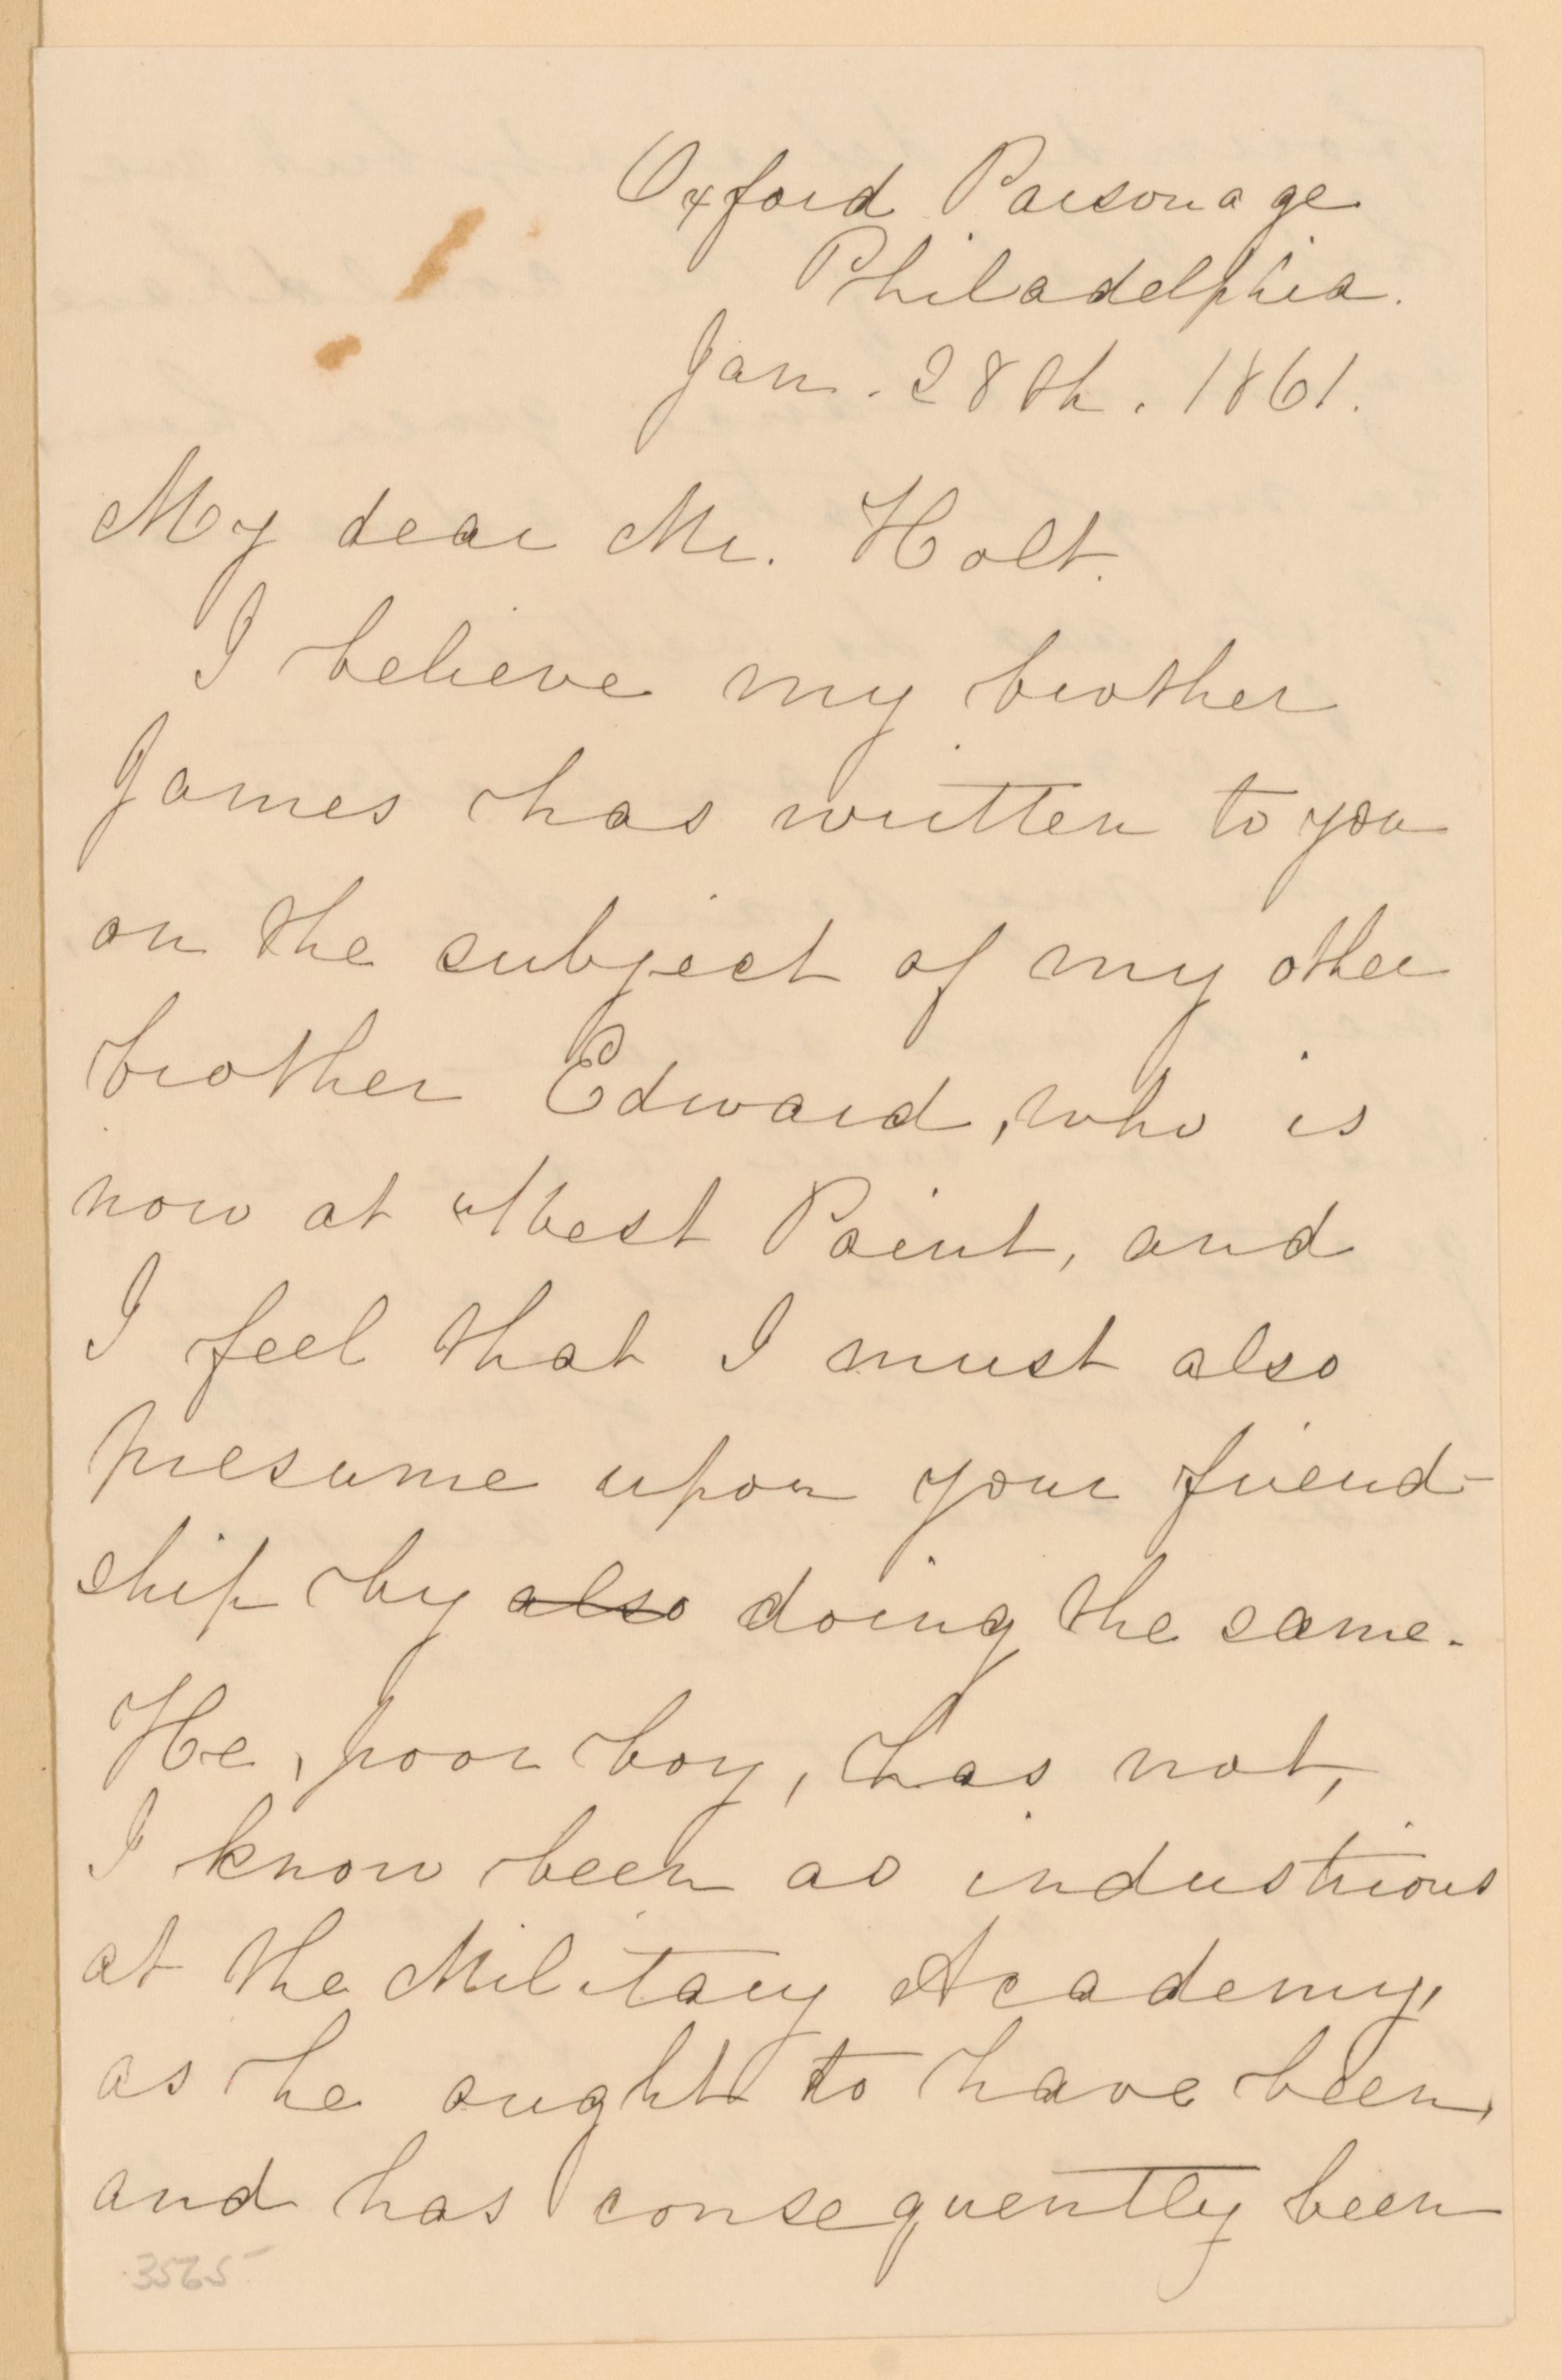 Oxford Parsonage
Philadelphia.
Jan. 28th. 1861.
My dear Mr. Holt.
I believe my brother
James has written to you
on the subject of my other
brother Edward, who is
now at West Point, and
I feel that I must also
presume upon your friend-
ship by also doing the same.
He, poor boy, has not,
I know been as industrious
at the Military Academy,
as he ought to have been,
and has consequently been
3565